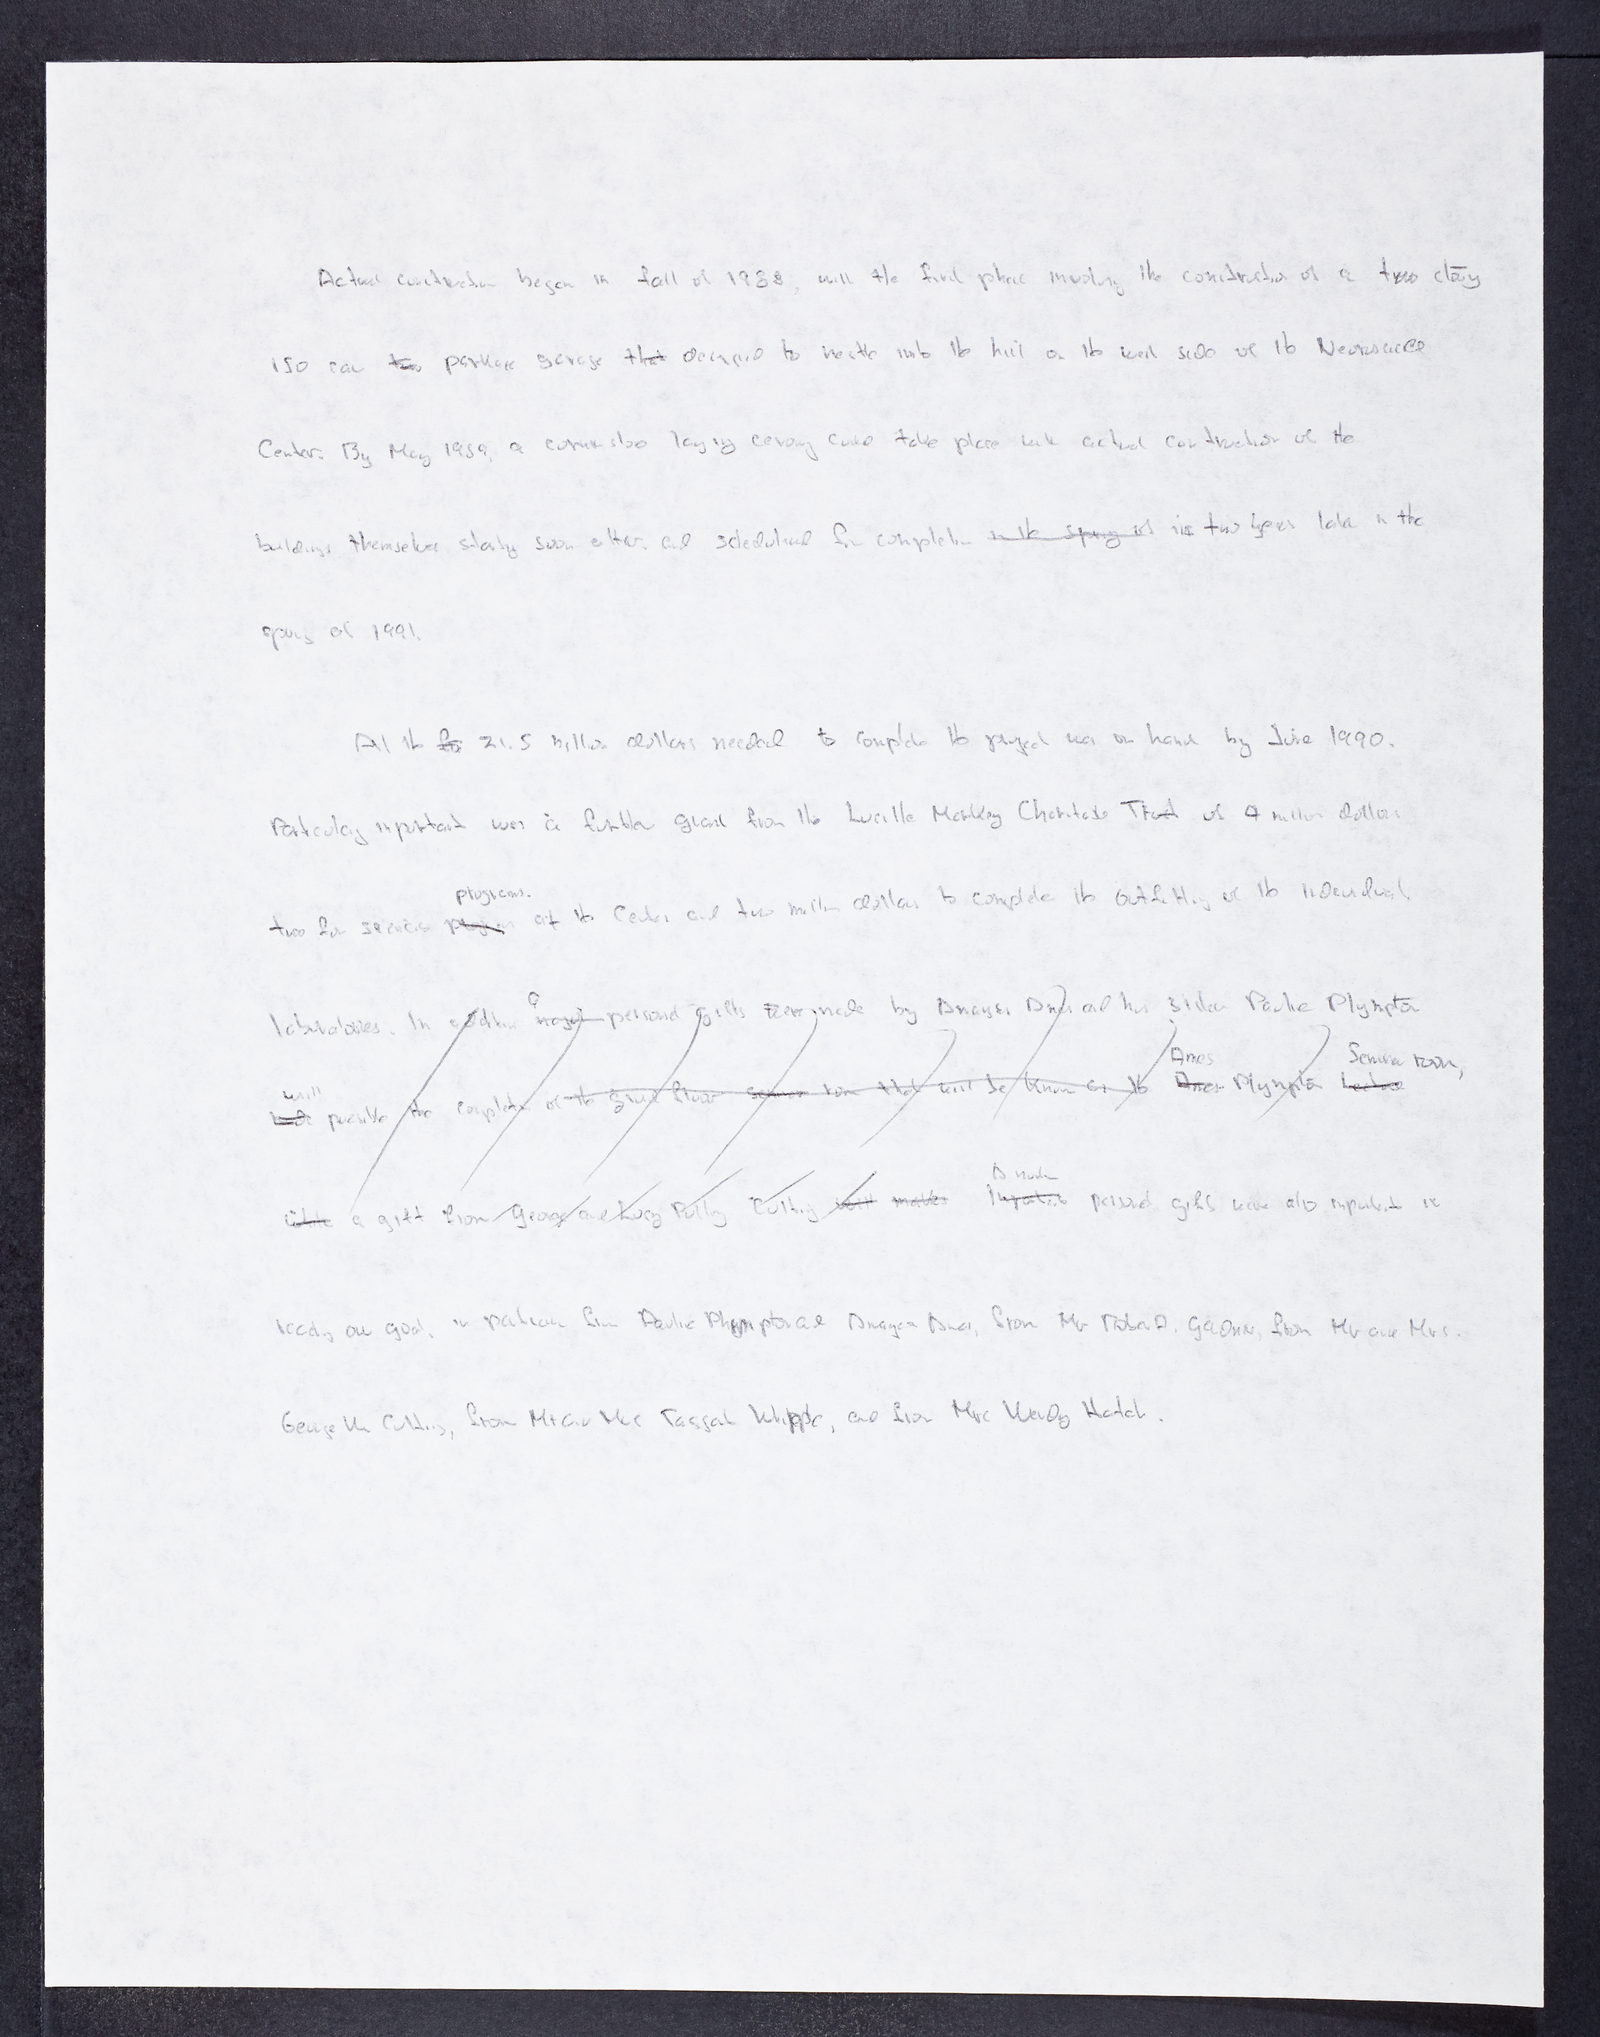 Actual construction began in fall of 1988, with the first phase involving the construction of a two story
150 car two parking garage that designed to nestle into the hill on the west side of the Neuroscience
Center. By May 1989, a cornerstone laying ceremony could take place with actual construction of the
buildings themselves starting soon after and scheduled for completion in the spring of in two years later in the
spring of 1991.
All the for 21.5 million dollars needed to complete the project was on hand by June 1990.
Particularly important was a further grant from the Lucille Markey Charitable Trust of 4 million dollars
programs.
two for science program at the Center and two million dollars to complete the outfitting of the individual
laboratories. In addition a major personal gifts were made by Amyas Ames and his sister Pauline Plympton
will Ames Seminar room,
possible the completion of the ground floor seminar room that will be known as the Ames Plympton Lecture
while a gift from George and Lucy Polly Cutting will makes Important personal gifts were also important in
reaching our goal, in particular from Pauline Plympton and Amyas Ames, from Mr Robert D. from Mr and Mrs.
George W. Cutting, from Mr and Mrs Taggart Whipple, and from Mrs Wendy Hatch.